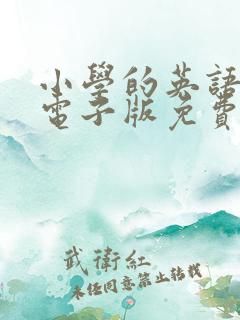 小學的英語
電子版免費
武衛紅
未經同意禁止轉載